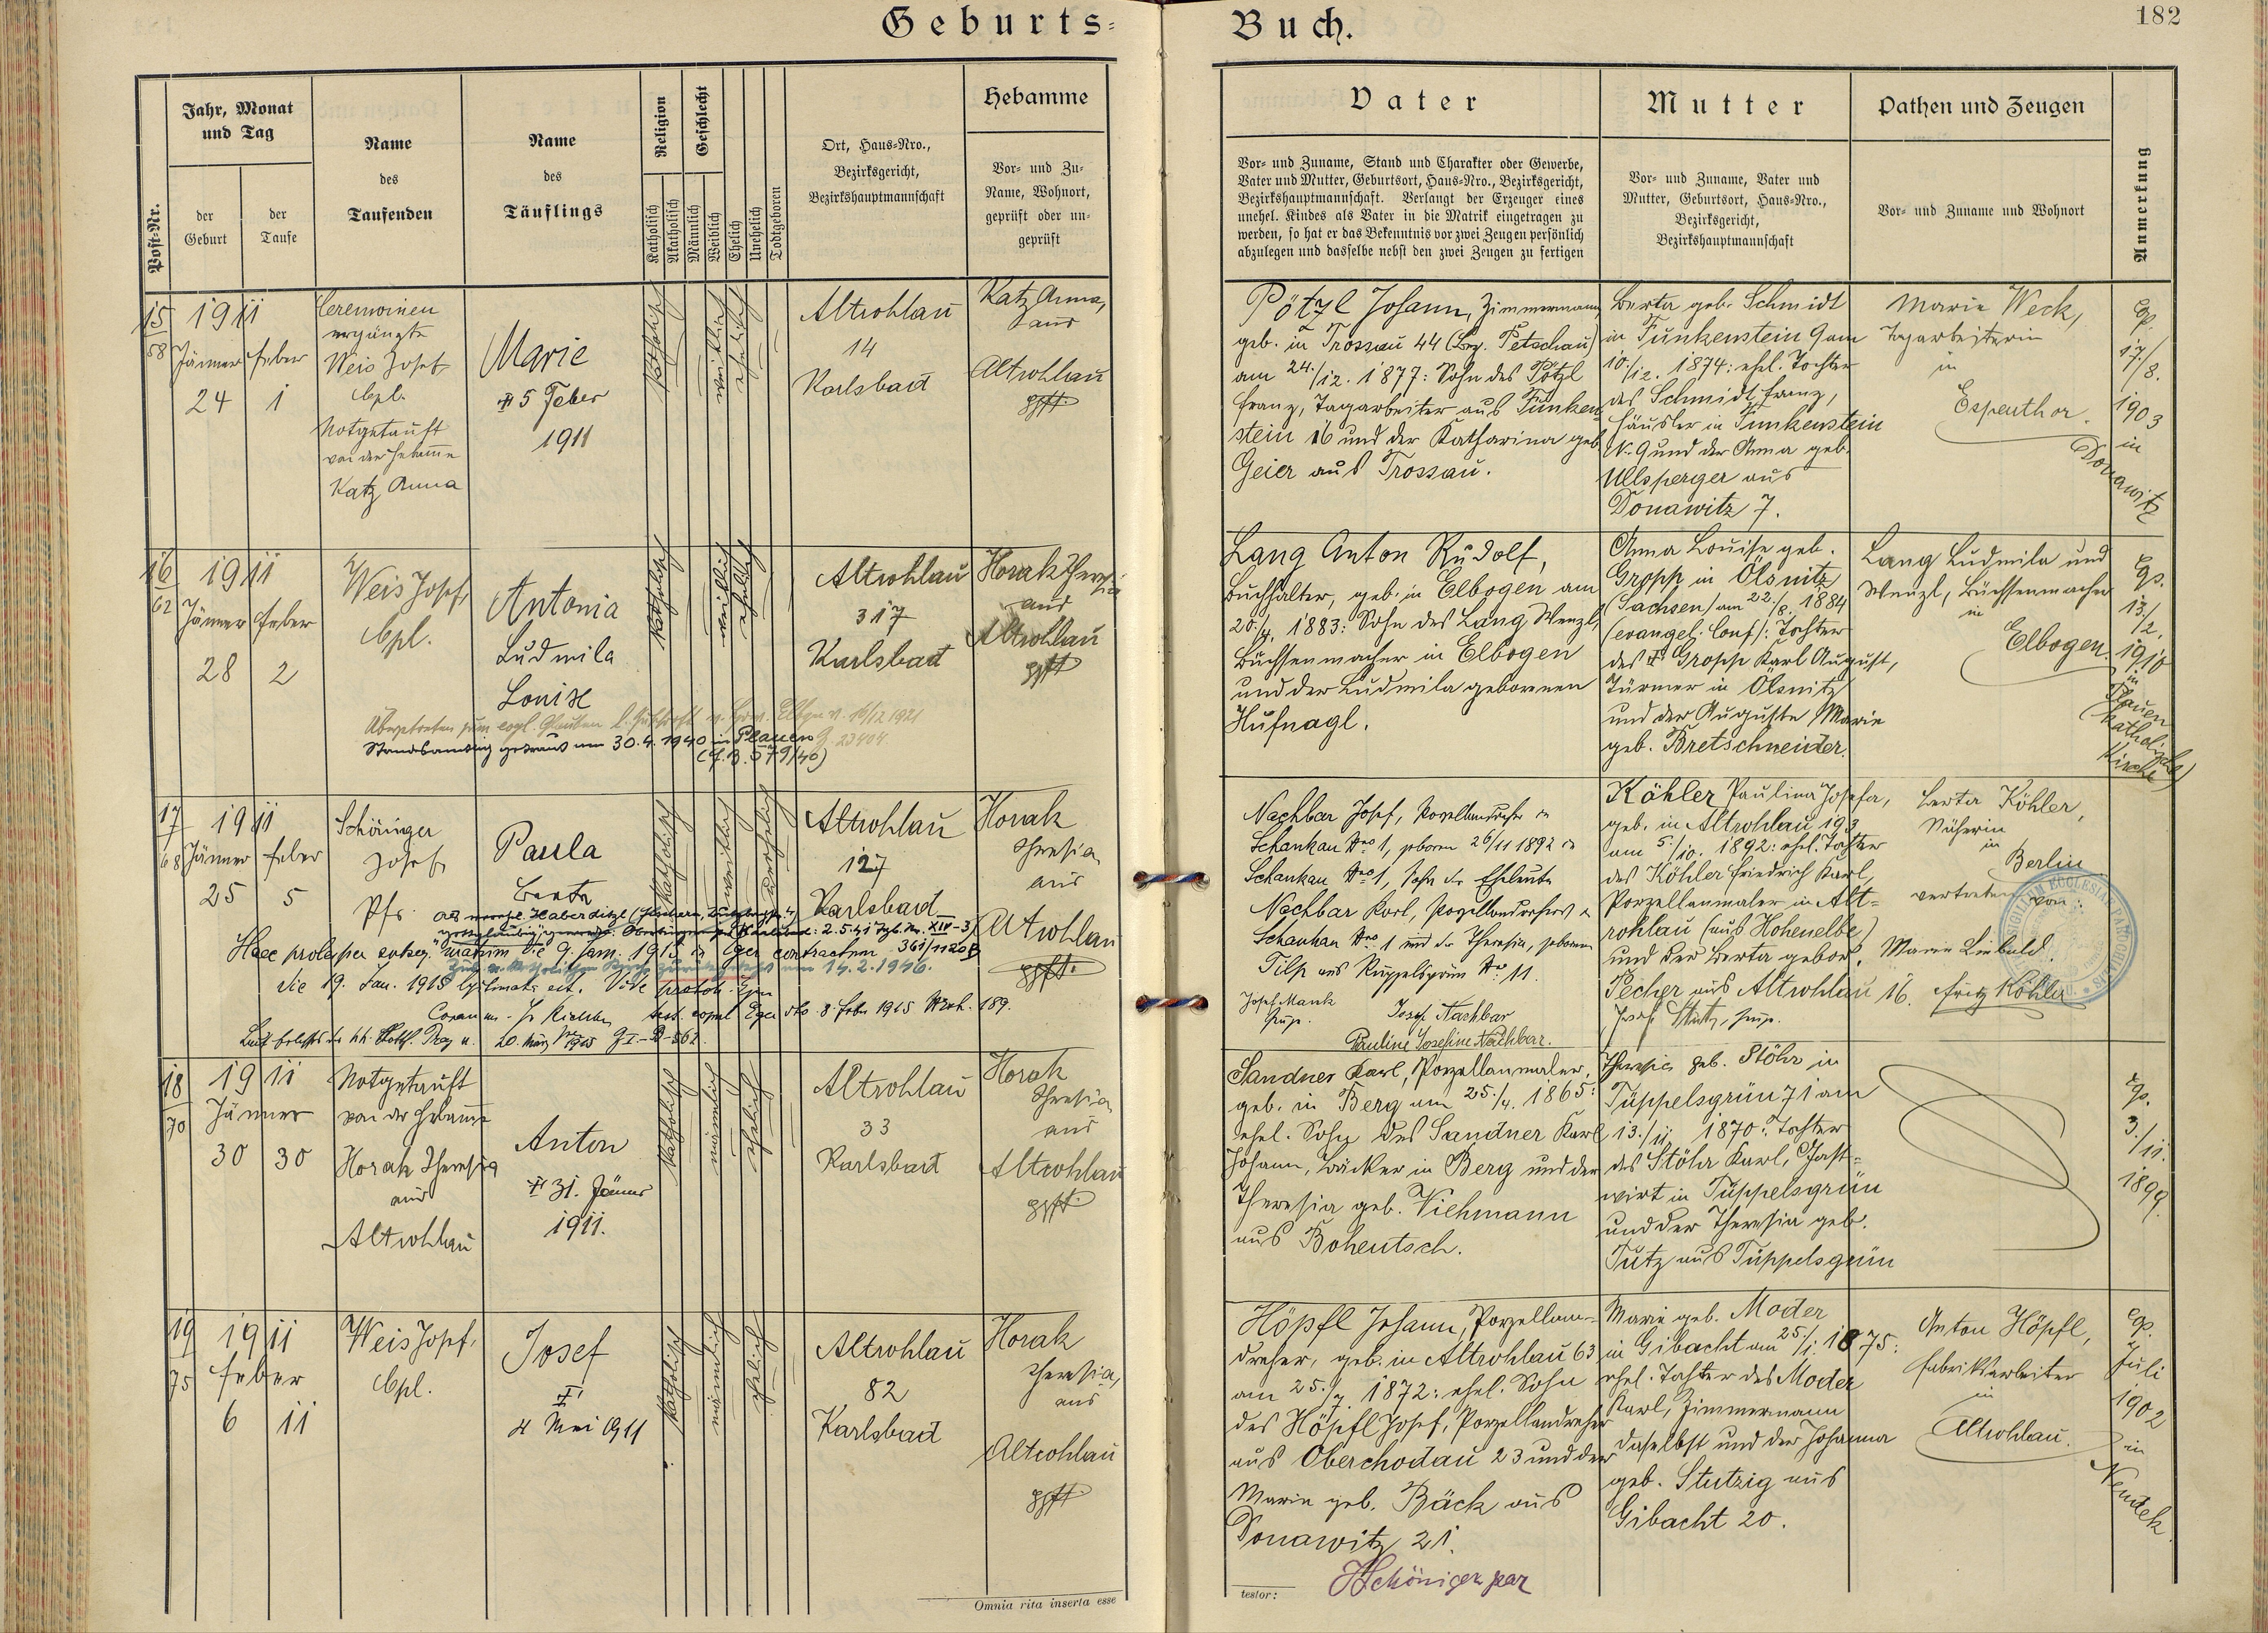 Geburts-
Buch.
182
Post-Nr.
Jahr, Monat
und Tag
der
Geburt
der
Taufe
Name
des
Taufenden
Name
des
Täuflings
Religion
Katholisch
Akatholisch
Geschlecht
Männlich
Weiblich
Ehelich
Unehelich
Todtgeboren
Ort, Haus-Nro.,
Bezirksgericht,
Bezirkshauptmannschaft
Hebamme
Vor- und Zu-
Name, Wohnort,
geprüft oder un-
geprüft
Vater
Vor- und Zuname, Stand und Charakter oder Gewerbe,
Vater und Mutter, Geburtsort, Haus-Nro., Bezirksgericht,
Bezirkshauptmannschaft. Verlangt der Erzeuger eines
unehel. Kindes als Vater in die Matrik eingetragen zu
werden, so hat er das Bekenntnis vor zwei Zeugen persönlich
abzulegen und dasselbe nebst den zwei Zeugen zu fertigen
Mutter
Vor- und Zuname, Vater und
Mutter, Geburtsort, Haus-Nro.,
Bezirksgericht,
Bezirkshauptmannschaft
Pathen und Zeugen
Vor- und Zuname und Wohnort
Anmerkung
15
58
1911
Jänner Feber
24 1
Ceremonien
ergänzte
Weis Josef
Cpl.
Notgetauft
von der Hebamme
Katz Anna
Marie
5 Feber
1911
katholisch
weiblich
ehelich
Altrohlau
14
Karlsbad
Katz Anna,
aus
Altrohlau
gpft.
Pötzl Johann, Zimmermann
geb. in Trossau 44 (Bez. Petschau)
am 24./12. 1877: Sohn des Pötzl
Franz, Tagarbeiter aus Funken-
stein 16 und der Katharina geb.
Geier aus Trossau.
Berta geb. Schmidt
in Funkenstein 9 am
10./12. 1874: ehel. Tochter
des Schmidt Franz,
Häusler in Funkenstein
N. 9 und der Anna geb.
Ullsperger aus
Donawitz 7.
Marie Weck,
Tagarbeiterin
in
Espenthor.
cp.
17./8.
1903
in
Donawitz
16
62
1911
Jänner Feber
28 2
Weis Josef,
Cpl.
Antonia
Ludmila
Louise
katholisch
weiblich
ehelich
Altrohlau
317
Karlsbad
Horak Theresia
aus
Altrohlau
gpft
Standesamtlich getraut am 30.4.1940 in Plauen
Lang Anton Rudolf,
Buchhalter, geb. in Elbogen am
20./4. 1883: Sohn des Lang Wenzl,
Büchsenmacher in Elbogen
und der Ludmila gebornen
Hufnagl.
Anna Louise geb.
Gropp in Ölsnitz
(Sachsen) am 22./8. 1884
(evangel. Conf.): Tochter
des Gropp Karl August,
Türmer in Ölsnitz
und der Auguste Marie
geb. Bretschneider.
Lang Ludmila und
Wenzl, Büchsenmacher
in
Elbogen.
cp.
13/2.
1910
in
Plauen
(katholische)
Kirche
17
68
1911
Jänner Feber
25 5
Schöniger
Josef
Pfr.
Paula
Berta
katholisch
weiblich
unehelich
Altrohlau
127
Karlsbad
Horak
Theresia
aus
Altrohlau
gpft.
Nachbar Josef, Porzellandreher in
Schankau Nro 1, geboren 26/11 1892 in
Schankau Nro 1, Sohn der Eheleute
Nachbar Karl, Porzellandreher in
Schankau Nro 1 und der Theresia, geborene
Tilp aus Ruppelsgrün No. 11.
Josef Nachbar
Pauline Josefine Nachbar.
Köhler Paulina Josefa,
geb. in Altrohlau 193
am 5./10. 1892: ehel. Tochter
des Köhler Friedrich Karl,
Porzellanmaler in Alt-
rohlau (aus Hohenelbe)
und der Berta gebor.
Pecher aus Altrohlau 16.
Berta Köhler,
Näherin
in
Berlin
vertreten von:
Marie Liebald.
Fritz Köhler
18
70
1911
Jänner
30 30
Notgetauft
von der Hebamme
Horak Theresia
aus
Altrohlau
Anton
31. Jänner
1911.
katholisch
männlich
ehelich
Altrohlau
33
Karlsbad
Horak
Theresia
aus
Altrohlau
gpft.
Sandner Karl, Porzellanmaler,
geb. in Berg am 25./4. 1865:
ehel. Sohn des Sandner Karl
Johann, Bäcker in Berg und der
Theresia geb. Viehmann
aus Bohentsch.
Theresia geb. Stöhr in
Tüppelsgrün 71 am
13./11. 1870: Tochter
des Stöhr Karl, Gast-
wirt in Tüppelsgrün
und der Theresia geb.
Tutz aus Tüppelsgrün
cp.
3./11.
1899.
19
75
1911
Feber
6 11
Weis Josef,
Cpl.
Josef
4 Mai 1911
katholisch
männlich
ehelich
Altrohlau
82
Karlsbad
Horak
Theresia,
aus
Altrohlau
gpft.
Höpfl Johann, Porzellan-
dreher, geb. in Altrohlau 63
am 25./7. 1872: ehel. Sohn
des Höpfl Josef, Porzellandreher
aus Oberchodau 23 und der
Marie geb. Bäck aus
Donawitz 21.
Marie geb. Moder
in Gibacht am 25./1. 1875:
ehel. Tochter des Moder
Karl, Zimmermann
daselbst und der Johanna
geb. Stutzig aus
Gibacht 20.
Anton Höpfl,
Fabriksarbeiter
in
Altrohlau.
cp.
7
Juli
1902
in
Neudek
Omnia rita inserta esse
testor:
JSchöniger par